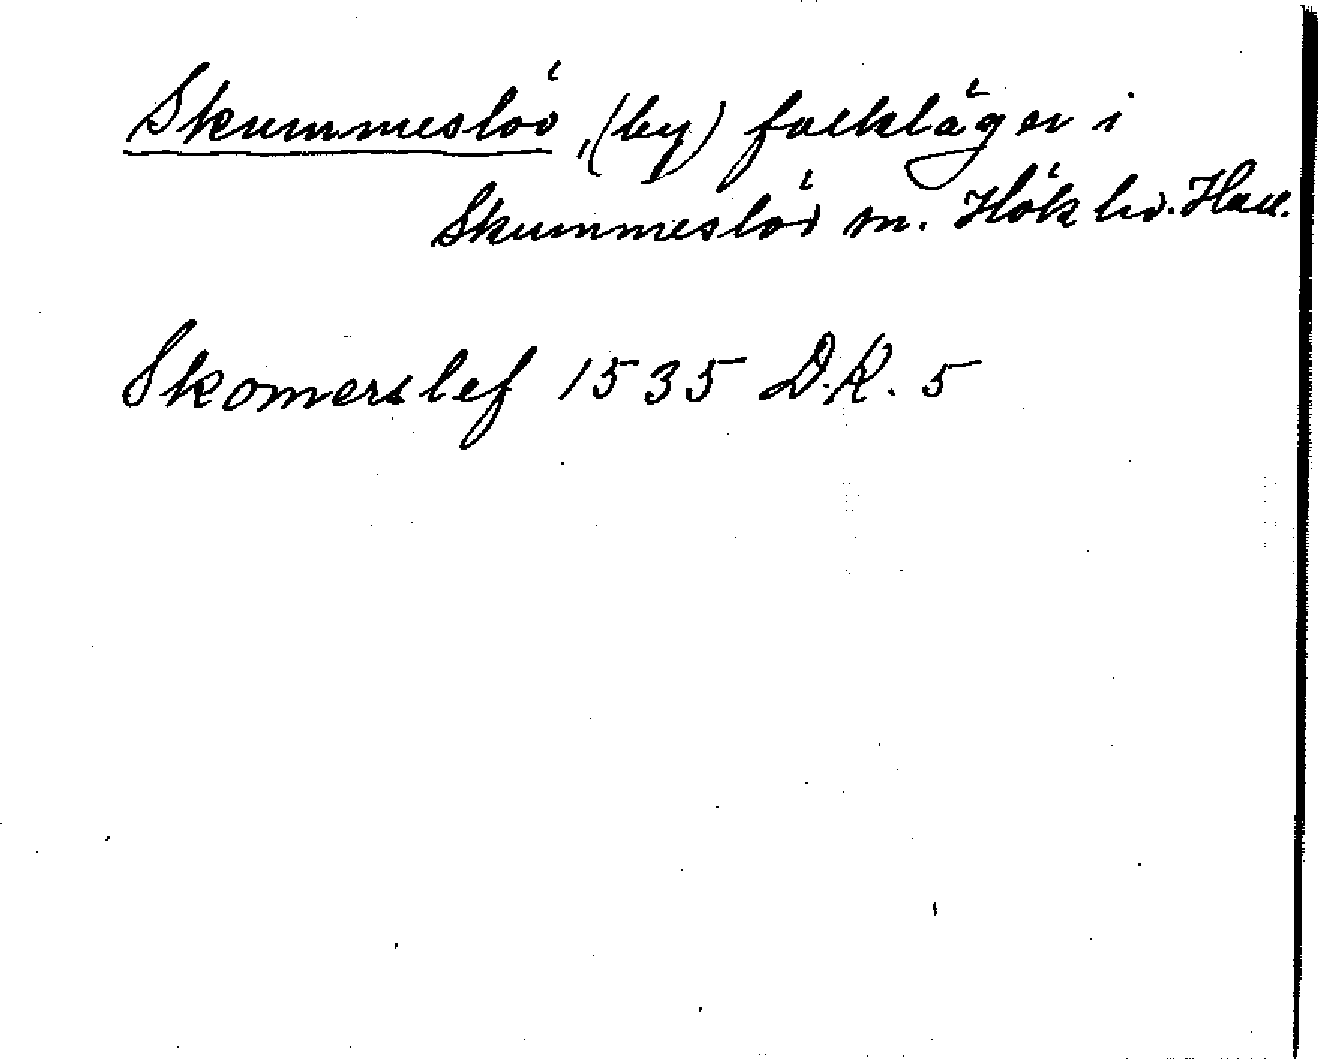 Skummeslöv, (by) folkläger i
Skummeslöv sn. Höks hd. Hall.
Skomerslef 1535 D.R. 5